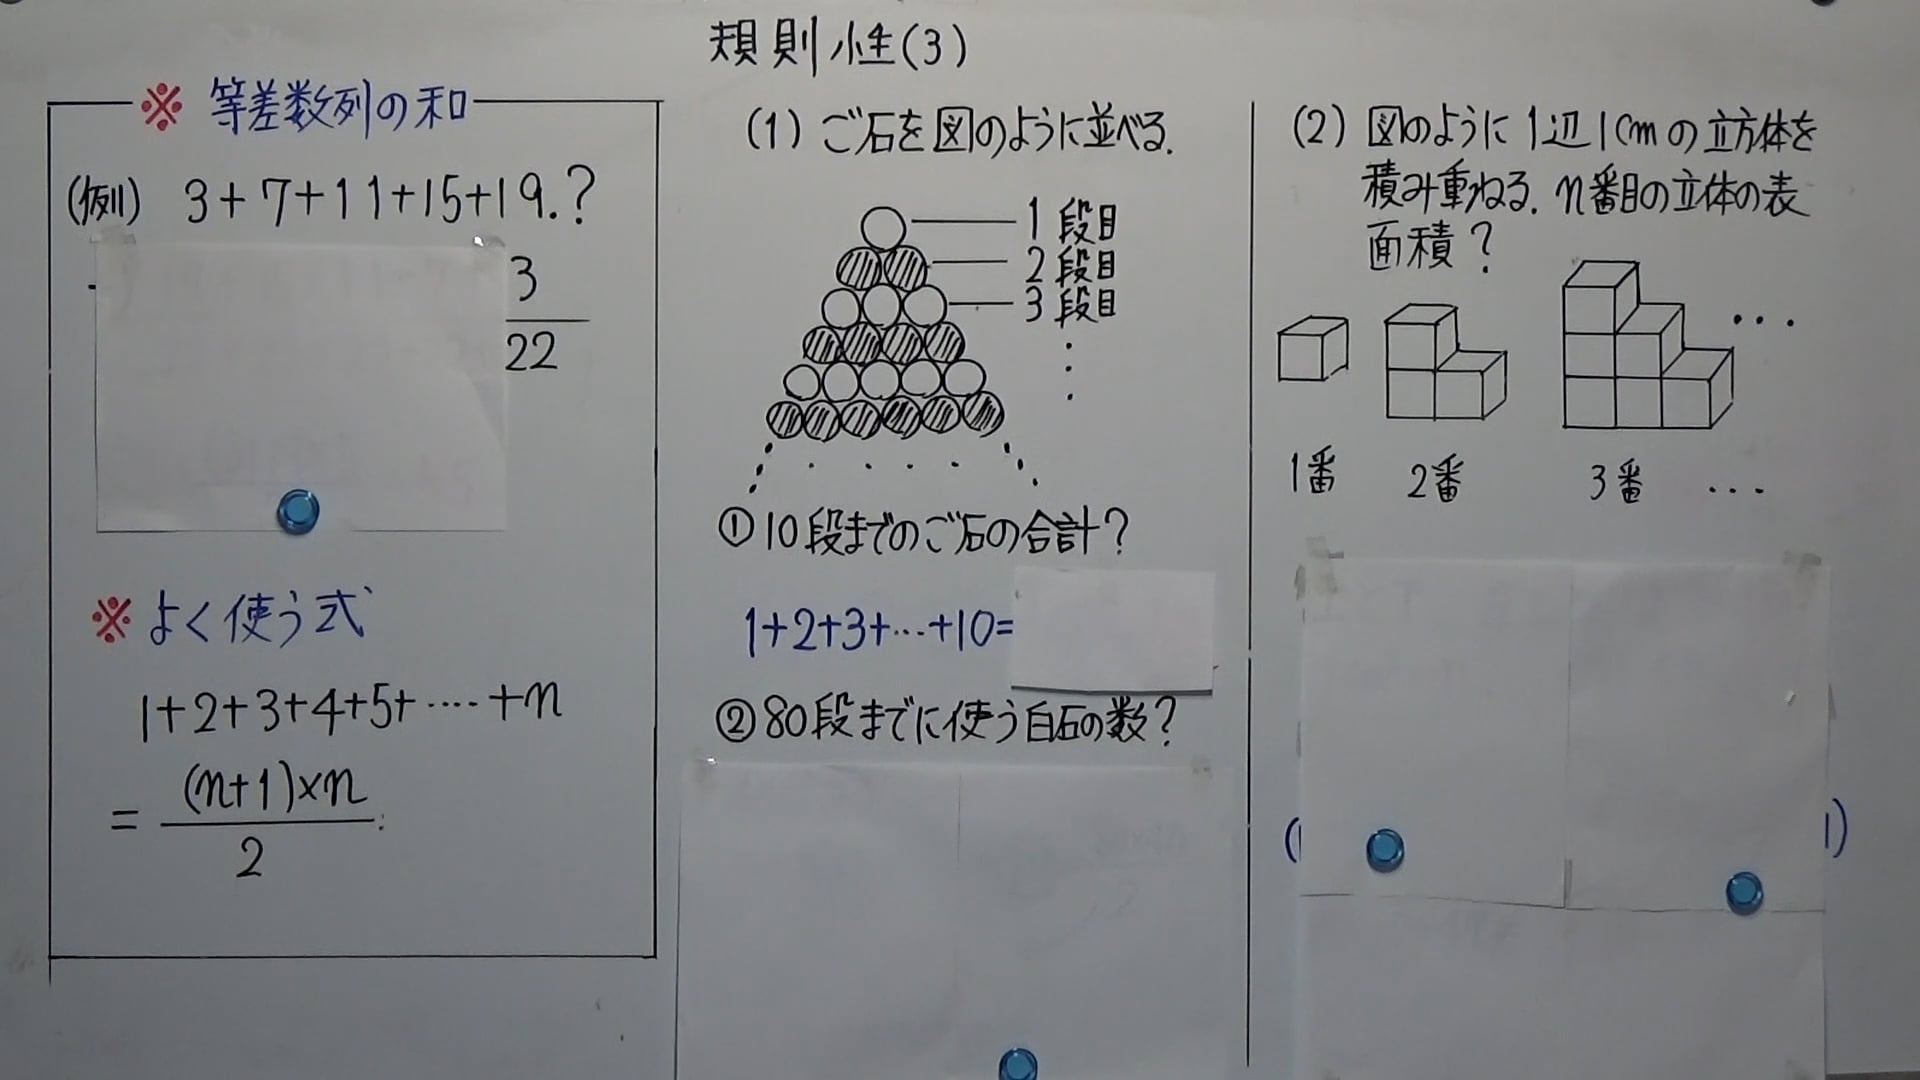 規則性(3)
※ 等差数列の和
(例) 3+7+11+15+19.?
3
22
※ よく使う式
1+2+3+4+5+‥‥+n
= (n+1)×n
2
(1) ご石を図のように並べる.
1段目
2段目
3段目
① 10段までのご石の合計?
1+2+3+…+10=
② 80段までに使う白石の数?
(2) 図のように1辺1cmの立方体を
積み重ねる. n番目の立体の表
面積?
1番 2番 3番 …